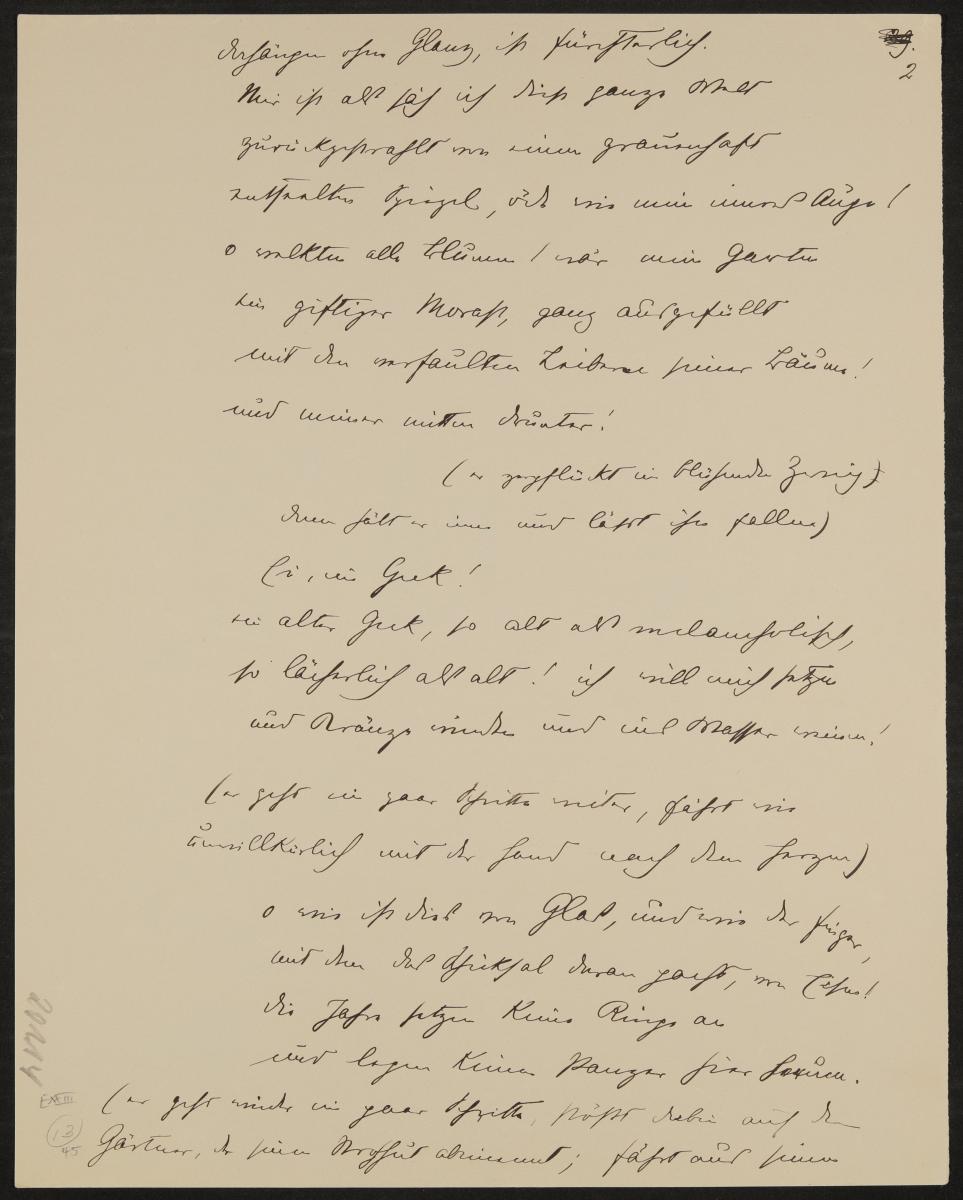 29.
2
dahängen ohne Glanz, ist fürchterlich.
Mir ist als säh ich diese ganze Welt
zurückgestrahlt von einem grauenhaft
entseelten Spiegel, öd wie mein innres Auge!
o welkten alle Blumen! wär mein Garten
ein giftiger Morast, ganz ausgefüllt
mit den verfaulten Leibern seiner Bäume!
und meiner mitten drunter!
(er zerpflückt ein blühenden Zweig)
dann hält er inne und läßt ihn fallen)
Ei, ein Geck!
ein alter Geck, so alt als melancholisch,
so lächerlich als alt! ich will mich setzen
und Kränze winden und ins Wasser weinen!
(er geht ein paar Schritte weiter, fährt wie
unwillkürlich mit der Hand nach dem Herzen)
o wie ist dies von Glas, und wie der Finger,
mit dem das Schicksal daran pocht, von Eisen!
die Jahre setzen keine Ringe an
und legen keinen Panzer hier herum.
(er geht wieder ein paar Schritte, stößt dabei auf den
Gärtner, der seinen Strohhut abnimmt; fährt aus seinem
13
45